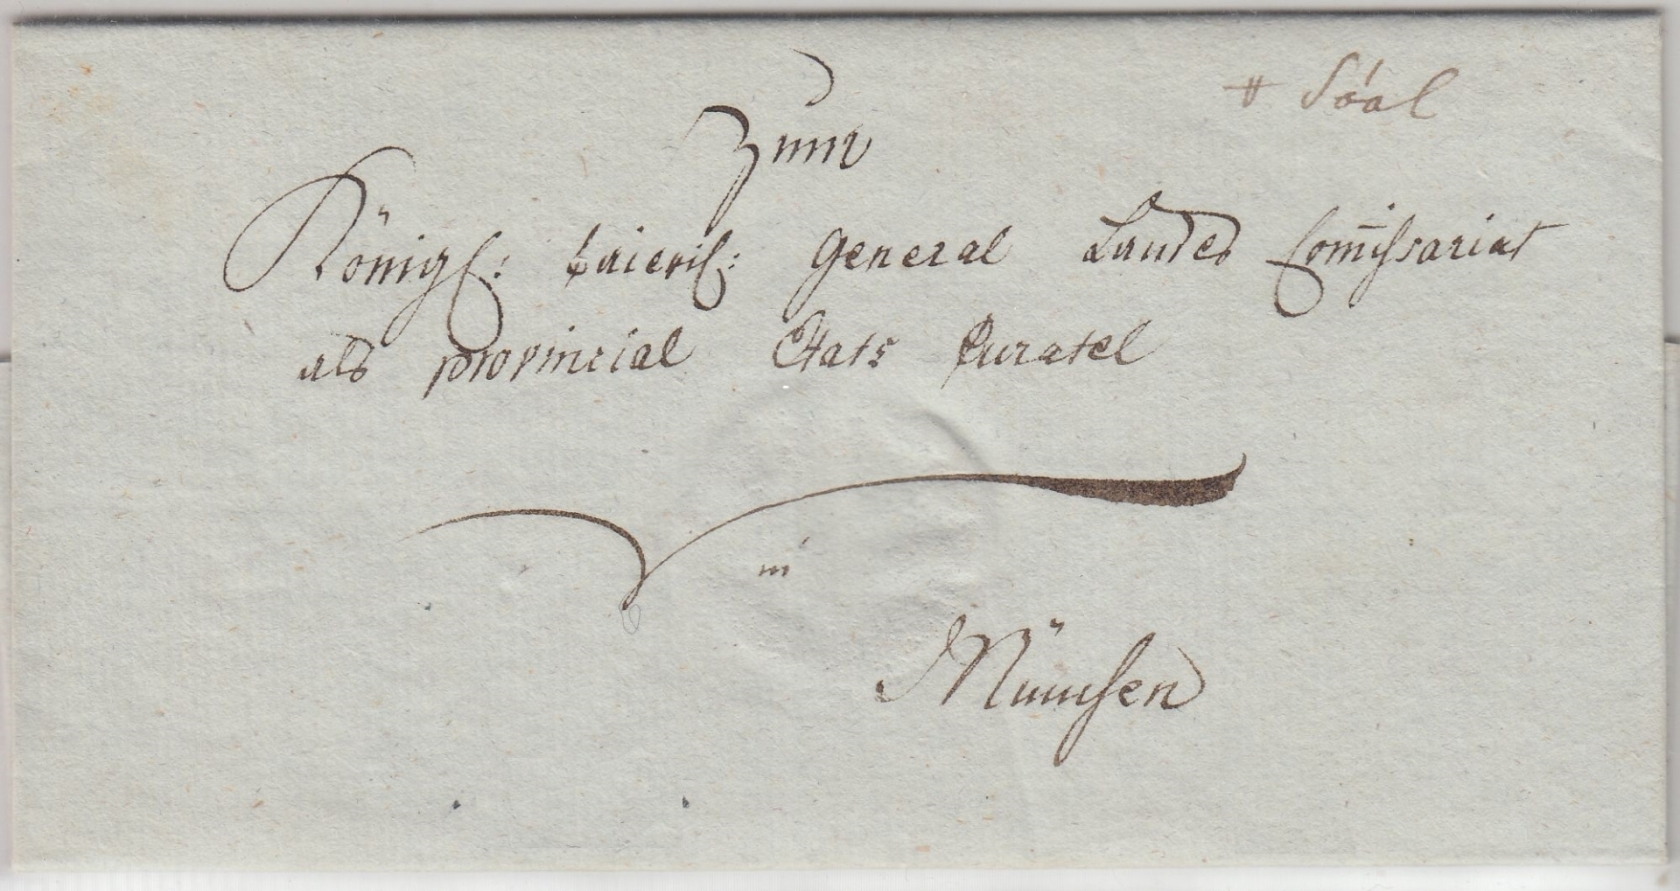 Zum
Königl: baierisch: General Landes Com̅issariat
als provincial Etats Curatel
in
München